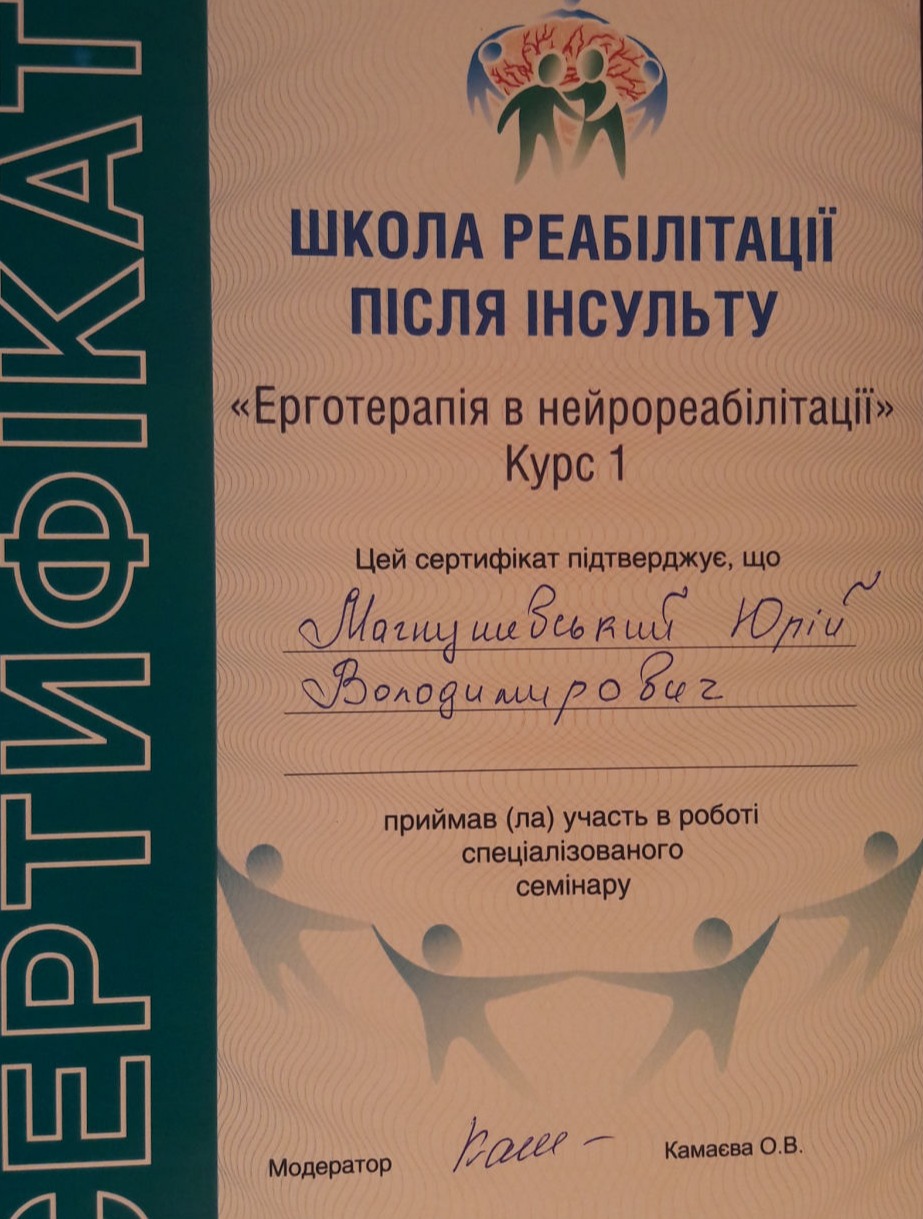 СЕРТИФІКАТ
ШКОЛА РЕАБІЛІТАЦІЇ
ПІСЛЯ ІНСУЛЬТУ
«Ерготерапія в нейрореабілітації»
Курс 1
Цей сертифікат підтверджує, що
Магнушевський Юрій
Володимирович
приймав (ла) участь в роботі
спеціалізованого
семінару
Модератор Камаєва О.В.